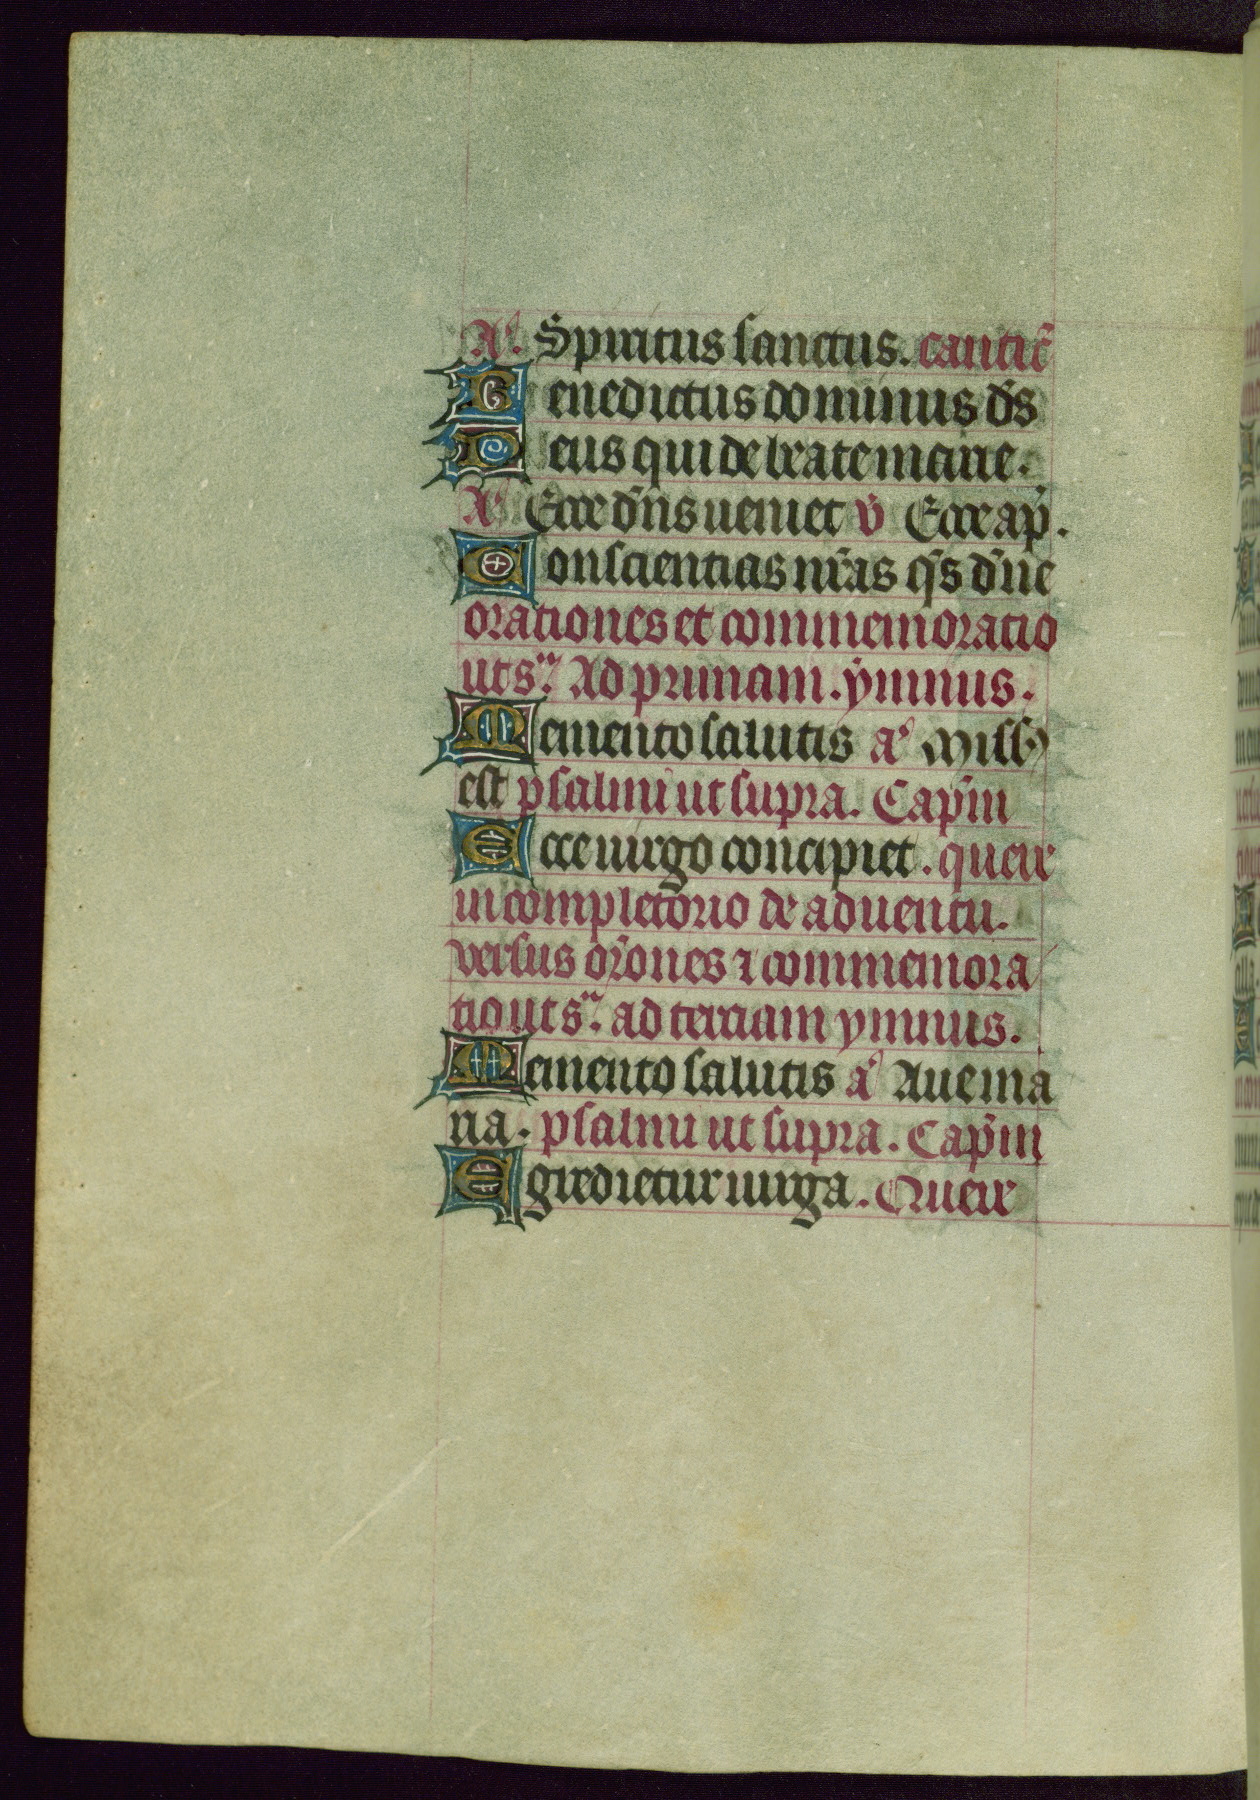 Aʳ. Spiritus sanctus. cantic̄
Benedictus dominus dn̄s
Deus qui de beate marie.
Aʳ Ecce dn̄s ueniet v̄ Ecce ap̄.
Conscientias nr̄as qs̄ dn̄e
orationes et commemoratio
ut sᵃ. Ad primam. ymnus.
Memento salutis aᵃ Missꝰ
est psalmi ut supra. Cap̄m
Ecce uirgo concipiet. quere
in completorio de aduentu.
versus or̄ones ⁊ commemora
tio ut sᵃ. ad terciam ymnus.
Memento salutis aᵃ Aue ma
ria. psalmi ut supra. Cap̄m
Egredietur uirga. Quere